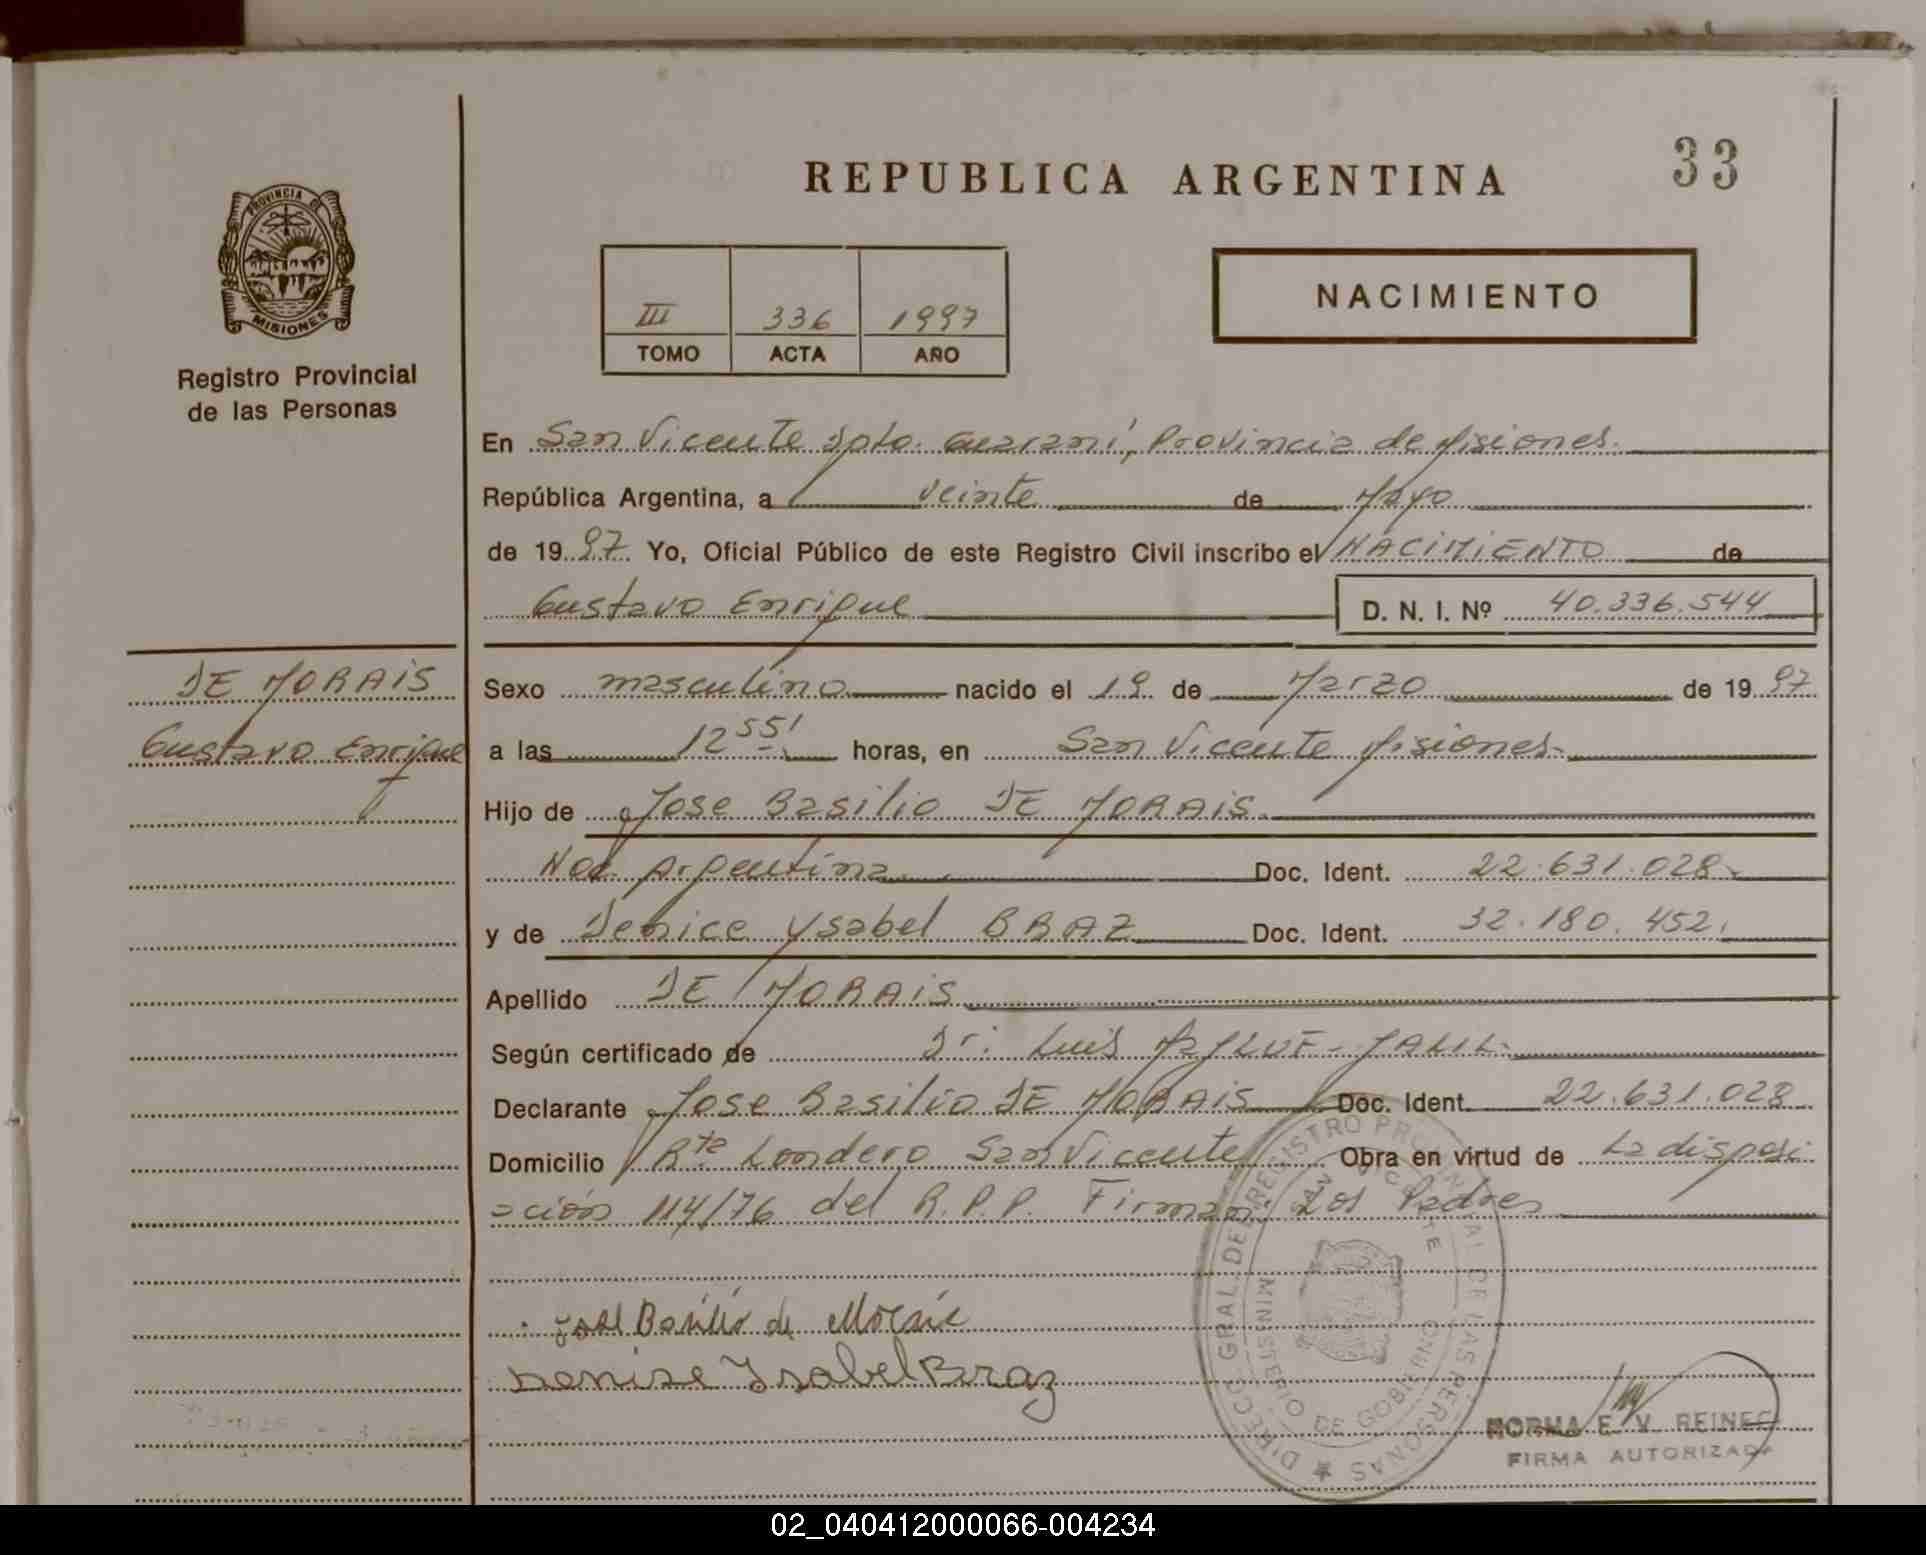 33
REPUBLICA ARGENTINA
PROVINCIA DE
MISIONES
Registro Provincial
de las Personas
III 336 1997
TOMO ACTA AÑO
NACIMIENTO
En San Vicente Dpto. Guaraní, Provincia de Misiones.
República Argentina, a veinte de Mayo
de 1997 Yo, Oficial Público de este Registro Civil inscribo el NACIMIENTO de
Gustavo Enrique D. N. I. Nº 40.336.544
DE MORAIS
Gustavo Enrique
Sexo masculino nacido el 19 de Marzo de 1997
a las 12 55' horas, en San Vicente Misiones.
Hijo de Jose Basilio DE MORAIS.
Nac Argentina Doc. Ident. 22.631.028
y de Denice Ysabel BRAZ Doc. Ident. 32.180.452.
Apellido DE MORAIS
Según certificado de Dr. Luis
Declarante Jose Basilio DE MORAIS Doc. Ident. 22.631.028
Domicilio Rte Londero San Vicente Obra en virtud de La disposi
ción 114/76 del R.P.P. Firman: Los Padres
José Basilio de Morais
Denise Ysabel Braz
DIRECC. GRAL. DE REGISTRO PROVINCIAL DE LAS PERSONAS
SAN VICENTE
MINISTERIO DE GOBIERNO
NORMA E. V. REINEC
FIRMA AUTORIZADA
02_040412000066-004234